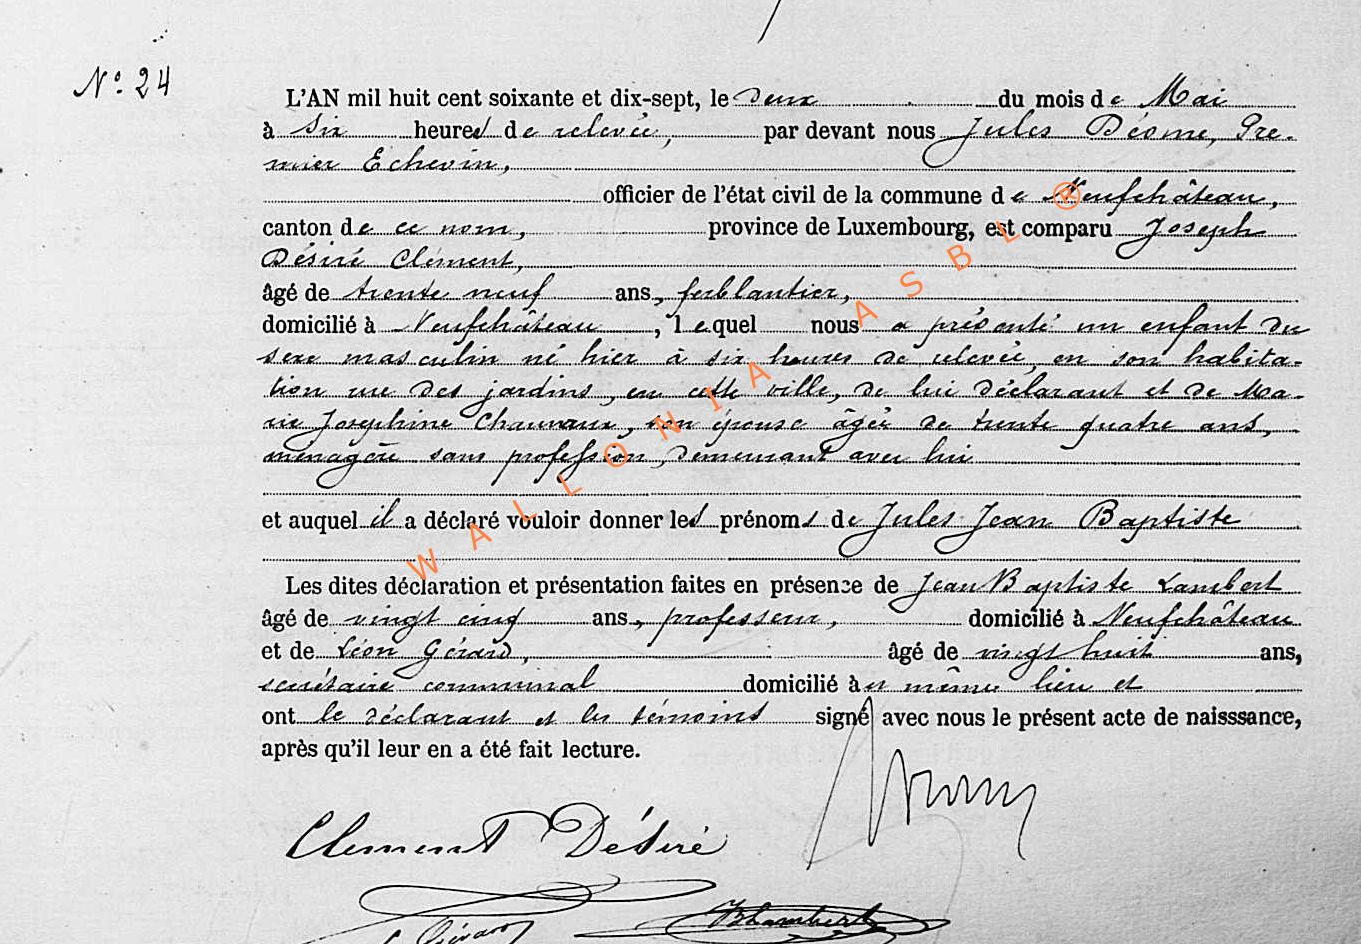 N° 24
L'AN mil huit cent soixante et dix-sept, le deux du mois de Mai
à six heures de relevée, par devant nous Jules Déome, Pre-
mier Echevin,
officier de l'état civil de la commune de Neufchâteau,
canton de ce nom, province de Luxembourg, est comparu Joseph
Désiré Clément,
âgé de trente neuf ans, ferblantier,
domicilié à Neufchâteau, lequel nous a présenté un enfant du
sexe masculin né hier à six heures de relevée, en son habita-
tion rue des jardins, en cette ville, de lui déclarant et de Ma-
rie Josephine son épouse âgée de trente quatre ans,
ménagère sans profession, demeurant avec lui
et auquel il a déclaré vouloir donner les prénoms de Jules Jean Baptiste
Les dites déclaration et présentation faites en présence de Jean Baptiste Lambert
âgé de vingt cinq ans, professeur, domicilié à Neufchâteau
et de Léon Gérard, âgé de vingt huit ans,
secrétaire communal domicilié au même lieu et
ont le déclarant et les témoins signé avec nous le présent acte de naisssance,
après qu'il leur en a été fait lecture.
Clement Désiré
L Gérard
JBLambert
WALLONIA ASBL ®